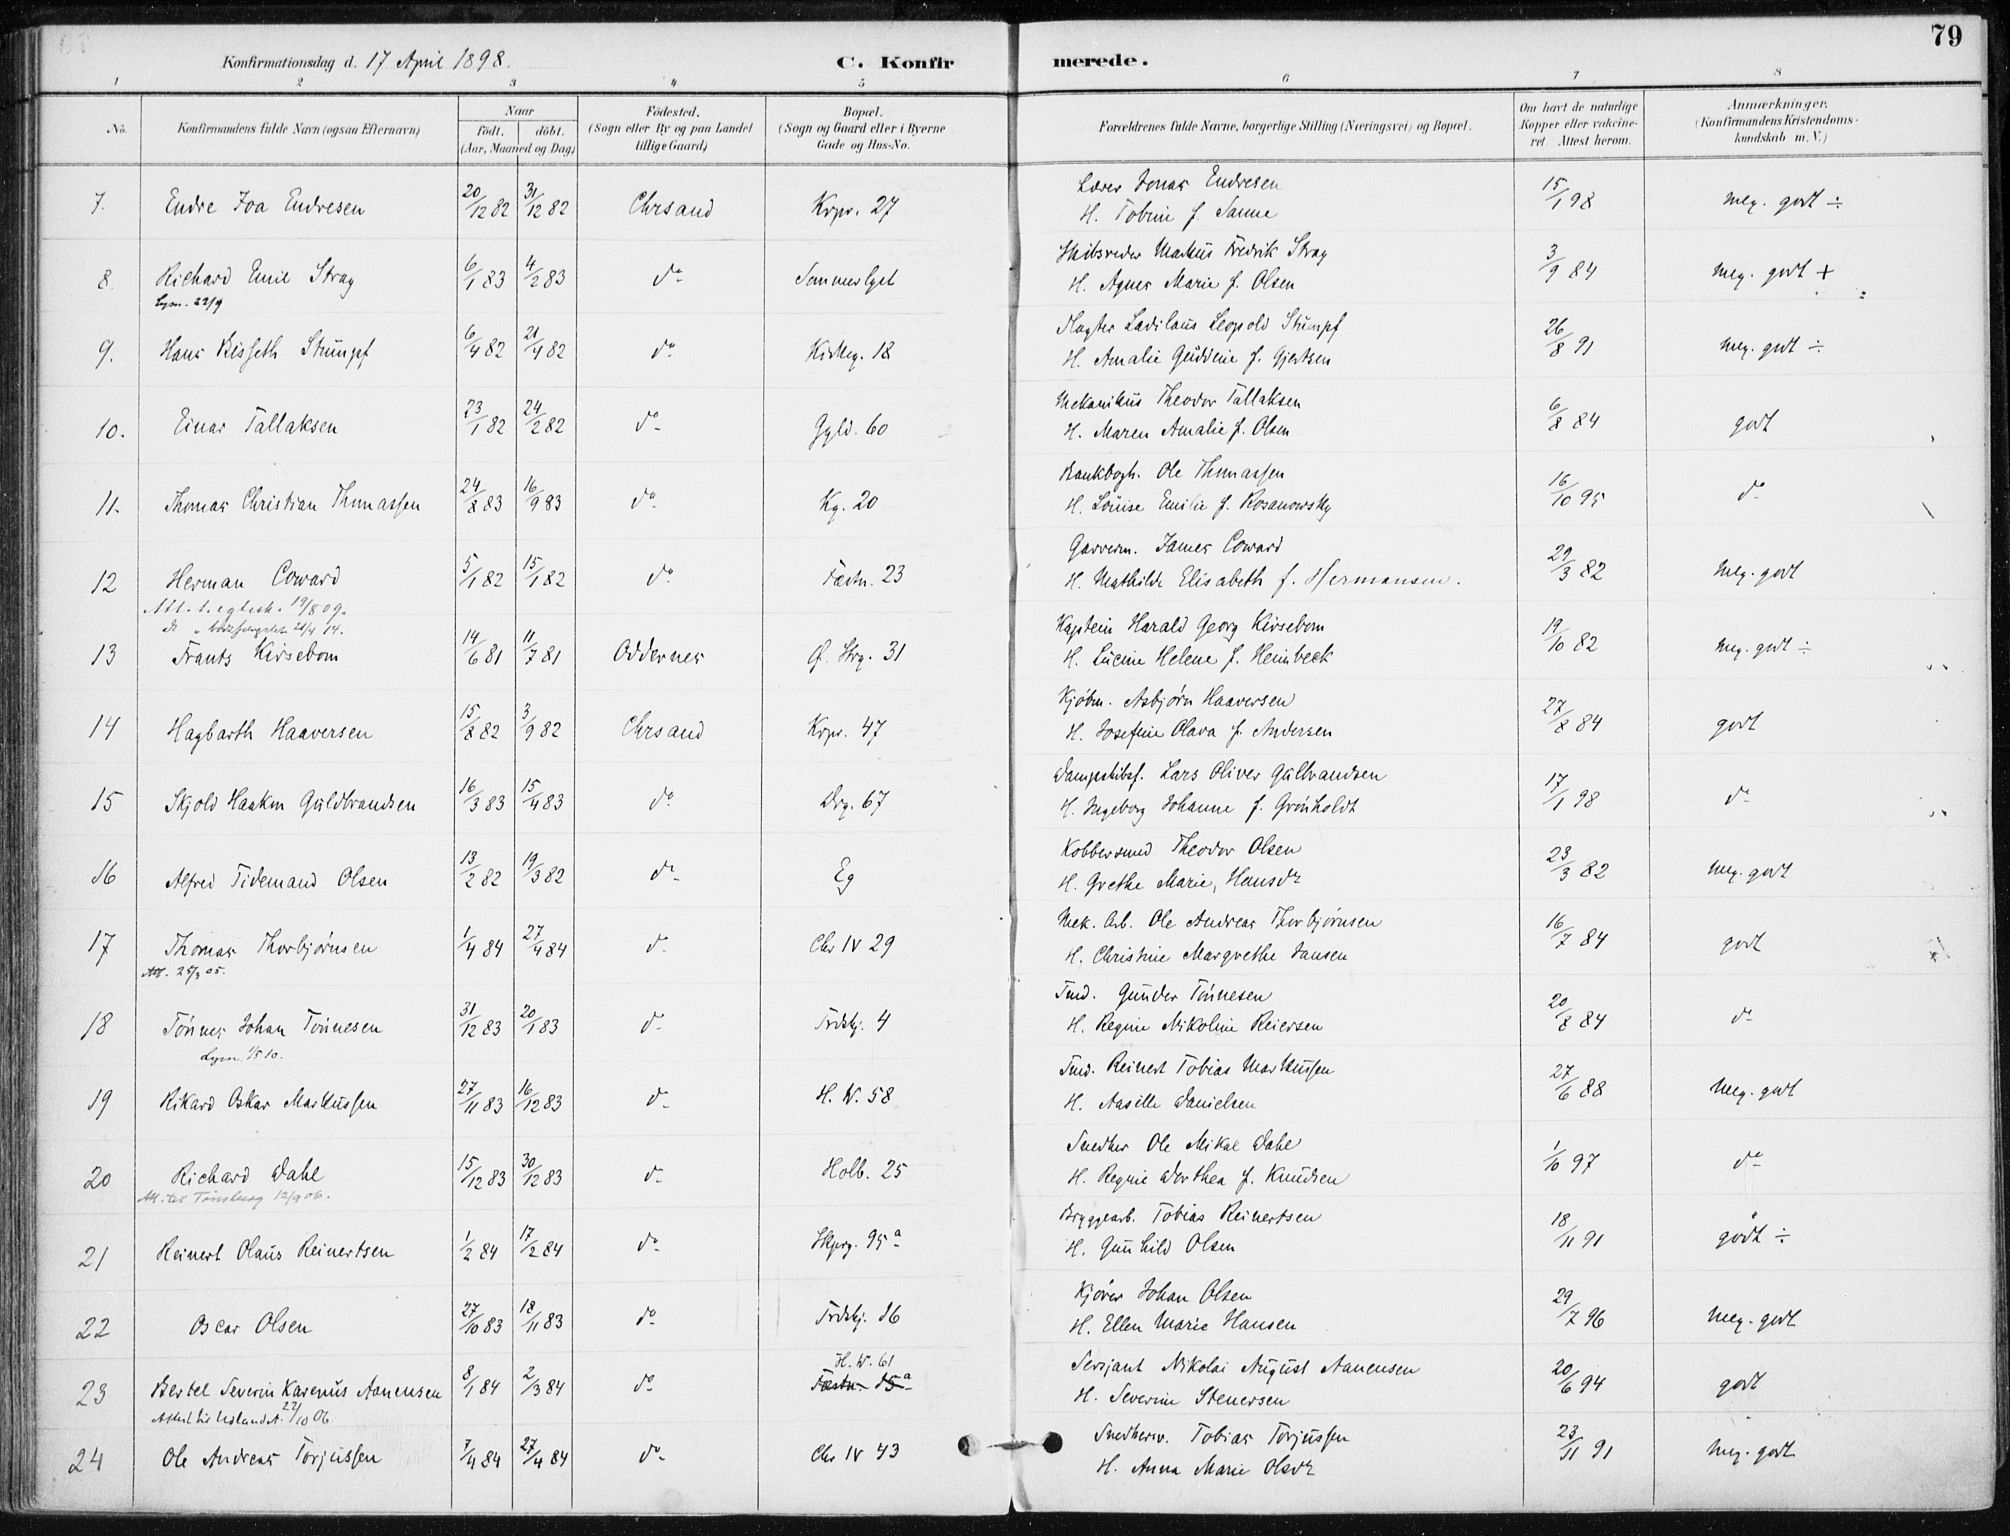 79
Konfirmationsdag d. 17 April 1898.
C. Konfirmerede.
1 2 3 4 5 6 7 8
No.
Konfirmandens fulde Navn (ogsaa Efternavn)
Naar
födt. döbt.
(Aar, Maaned og Dag)
Födested.
(Sogn eller By og paa Landet
tillige Gaard)
Bopæl.
(Sogn og Gaard eller i Byerne
Gade og Hus-No.
Forældrenes fulde Navne, borgerlige Stilling (Næringsvei) og Bopæl.
Om havt de naturlige
Kopper eller vakcine-
ret. Attest herom.
Anmærkninger.
(Konfirmandens Kristendoms-
kundskab m. V.)
7. Endre Foa Endresen 20/12 82 31/12 82 Chrsand Krpr. 27 Lærer Jonas Endresen 15/1 98 meg. godt ÷
H. Tobine f. Sanne
8. Richard Emil Stray 6/1 83 4/2 83 do Sommerlyst Skibsreder Markus Fredrik Stray 3/9 84 meg. godt +
Lysn. 22/9 H. Agnes Marie f. Olsen
9. Hans Bisseth Stumpf 6/4 82 21/4 82 do Kirkeg. 18 Slagter Ladilaus Leopold Stumpf 26/8 91 meg. godt ÷
H. Amalie f. Gjertsen
10. Einar Tallaksen 23/1 82 24/2 82 do Gyld. 60 Mekanikus Theodor Tallaksen 6/8 84 godt
H. Maren Amalie f. Olsen
11. Thomas Christian Thomassen 24/8 83 16/9 83 do Kg. 20 Bankbogh. Ole Thomassen 16/10 95 do
H. Louise Emilie f. Rosanowsky
12 Herman Coward 5/1 82 15/1 82 do Fæstn. 23 Garverm. James Coward 29/3 82 meg. godt
Att. t. egtesk. 19/8 09. H. Mathilde Elisabeth f. Hermansen.
do 21/4 14.
13 Frants Kirsebom 14/6 81 11/7 81 Oddernes Ø. Strg. 31 Kaptein Harald Georg Kirsebom 19/10 82 meg. godt ÷
H. Lucine Helene f. Heimbeck
14 Hagbarth Haaversen 15/8 82 3/9 82 Chrsand Krpr. 47 Kjøbm. Asbjørn Haaversen 27/8 84 godt
H. Josefine Olava f. Andersen
15 Skjold Haakon Guldbrandsen 16/3 83 15/4 83 do Drg. 67 Dampskibsf. Lars Oliver Gulbrandsen 17/1 98 do
H. Ingeborg Johanne f. Grønholdt
16 Alfred Tidemand Olsen 13/2 82 19/3 82 do Eg Kobbersmed Theodor Olsen 23/3 82 meg. godt
H. Grethe Marie, Hansdr
17 Thomas Thorbjørnsen 1/4 84 27/4 84 do Chr IV 29 Mek. Arb. Ole Andreas Thorbjørnsen 16/7 84 godt
Att. 25/3 05. H. Christine Margrethe Jansen
18 Tønnes Johan Tønnesen 31/12 83 20/1 83 do Frdskj. 4 Tmd. Gunder Tønnesen 20/8 84 do
Lysn. 1/5 10. H. Regine Nikoline Reiersen
19 Rikard Oskar Markussen 27/11 83 16/12 83 do H. W. 58 Tmd. Reinert Tobias Markussen 27/6 88 meg. godt
H. Aasille Danielsen
20 Richard Dahl 15/12 83 30/12 83 do Holb. 25 Snedker Ole Mikal Dahl 1/10 97 do
Att. til Tønsberg 12/9 06. H. Regine Dorthea f. Knudsen
21 Reinert Olaus Reinertsen 1/2 84 17/2 84 do Skprg. 95 a Bryggearb. Tobias Reinertsen 18/11 91 godt ÷
H. Gunhild Olsen
22 Oscar Olsen 27/10 83 18/11 83 do Frdskj. 16 Kjører Johan Olsen 29/7 96 meg. godt
H. Ellen Marie Hansen
H. W. 61
23 Bertel Severin Karenus Aanensen 8/1 84 2/3 84 do Fæstn. 15 a Sersjant Nikolai August Aanensen 20/6 94 godt
Attest til Udlandet 22/10 06. H. Severine Stenersen
24 Ole Andreas Torjussen 7/4 84 27/4 84 do Chr IV 43 Snedkersv. Tobias Torjussen 23/11 91 meg. godt
H. Anna Marie Olsdr